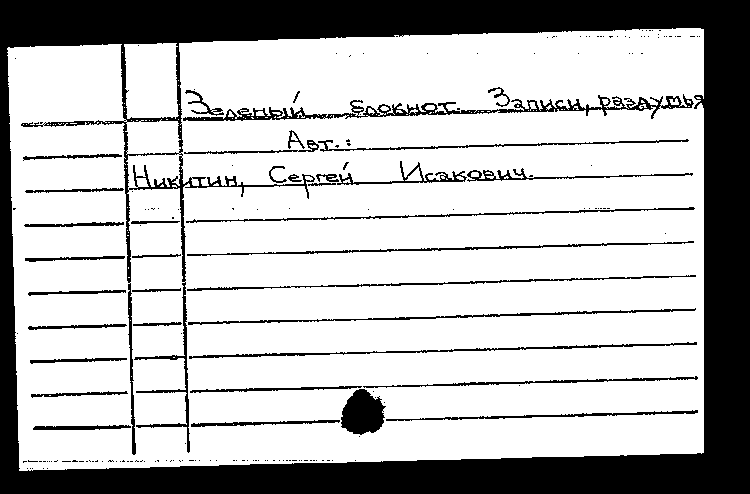 Зеленый блокнот. Записи, раздумья
Авт.:
Никитин, Сергей Исакович.